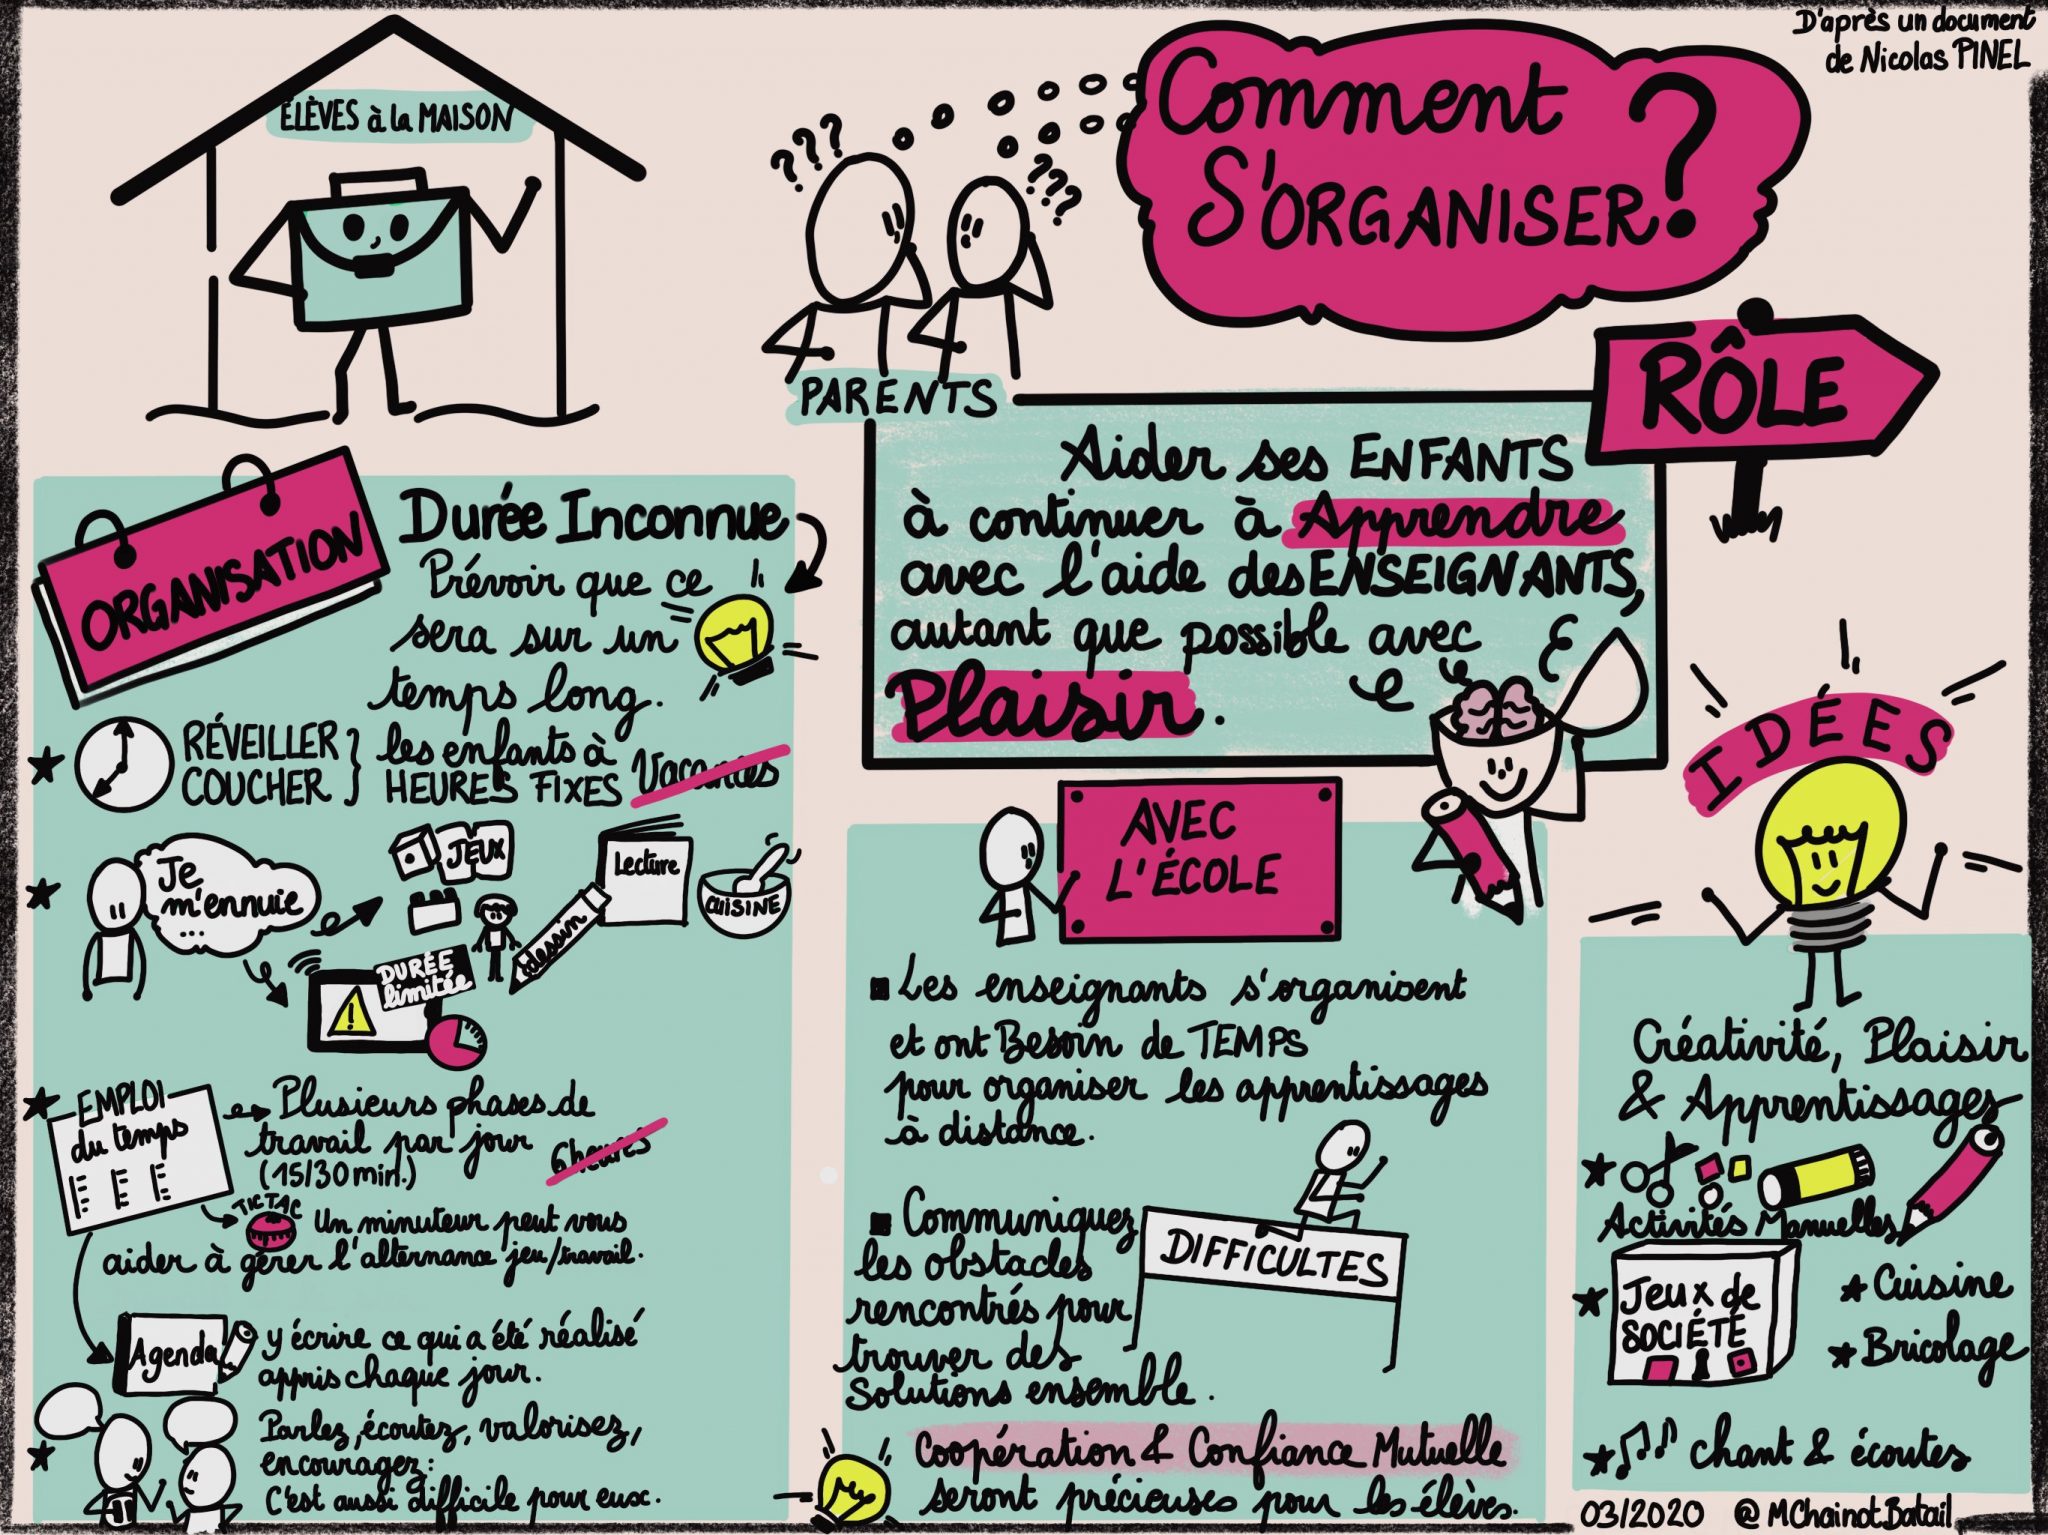 D'après un document
de Nicolas PINEL
ÉLÈVES à la MAISON
Comment
S'ORGANISER?
???
???
PARENTS
RÔLE
Aider ses ENFANTS
à continuer à Apprendre
avec l'aide des ENSEIGNANTS,
autant que possible avec
Plaisir.
ORGANISATION
Durée Inconnue
Prévoir que ce
sera sur un
temps long.
RÉVEILLER
COUCHER
les enfants à
HEURES FIXES
Vacances
Je
m'ennuie
...
JEUX
Lecture
CUISINE
dessin
DURÉE
limitée
!
EMPLOI
du temps
Plusieurs phases de
travail par jour
(15/30 min.)
6 heures
TIC TAC
Un minuteur peut vous
aider à gérer l'alternance jeu/travail.
Agenda
y écrire ce qui a été réalisé
appris chaque jour.
Parlez, écoutez, valorisez,
encouragez:
C'est aussi difficile pour eux.
AVEC
L'ÉCOLE
Les enseignants s'organisent
et ont Besoin de TEMPS
pour organiser les apprentissages
à distance.
Communiquez
les obstacles
rencontrés pour
trouver des
Solutions ensemble.
DIFFICULTES
Coopération & Confiance Mutuelle
seront précieuses pour les élèves.
IDÉES
Créativité, Plaisir
& Apprentissages
Activités Manuelles
Jeux de
SOCIÉTÉ
Cuisine
Bricolage
chant & écoutes
03/2020 @MChainot.Batail